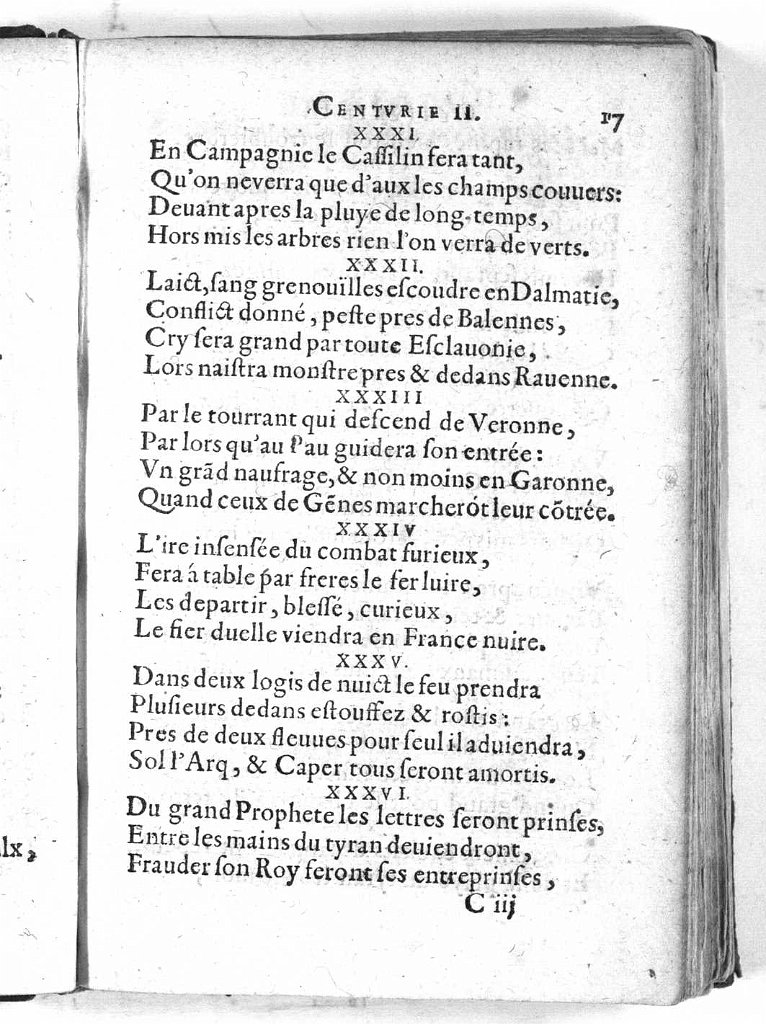 CENTVRIE II. 17
XXXI.
En Campagnie le Caſſilin ſera tant,
Qu'on neverra que d'aux les champs couuers:
Deuant apres la pluye de long-temps,
Hors mis les arbres rien l'on verra de verts.
XXXII.
Laict, ſang grenouïlles eſcoudre en Dalmatie,
Conflict donné, peſte pres de Balennes,
Cry ſera grand par toute Eſclauonie,
Lors naiſtra monſtre pres & dedans Rauenne.
XXXIII
Par le tourrant qui deſcend de Veronne,
Par lors qu'au Pau guidera ſon entrée:
Vn grãd naufrage, & non moins en Garonne,
Quand ceux de Gẽnes marcherót leur cõtrée.
XXXIV
L'ire inſenſée du combat furieux,
Fera á table par freres le fer luire,
Les departir, bleſſé, curieux,
Le fier duelle viendra en France nuire.
XXXV.
Dans deux logis de nuict le feu prendra
Pluſieurs dedans eſtouffez & roſtis:
Pres de deux fleuues pour ſeul il aduiendra,
Sol l'Arq, & Caper tous ſeront amortis.
XXXVI.
Du grand Prophete les lettres ſeront prinſes,
Entre les mains du tyran deuiendront,
Frauder ſon Roy ſeront ſes entreprinſes,
C iij
lx,